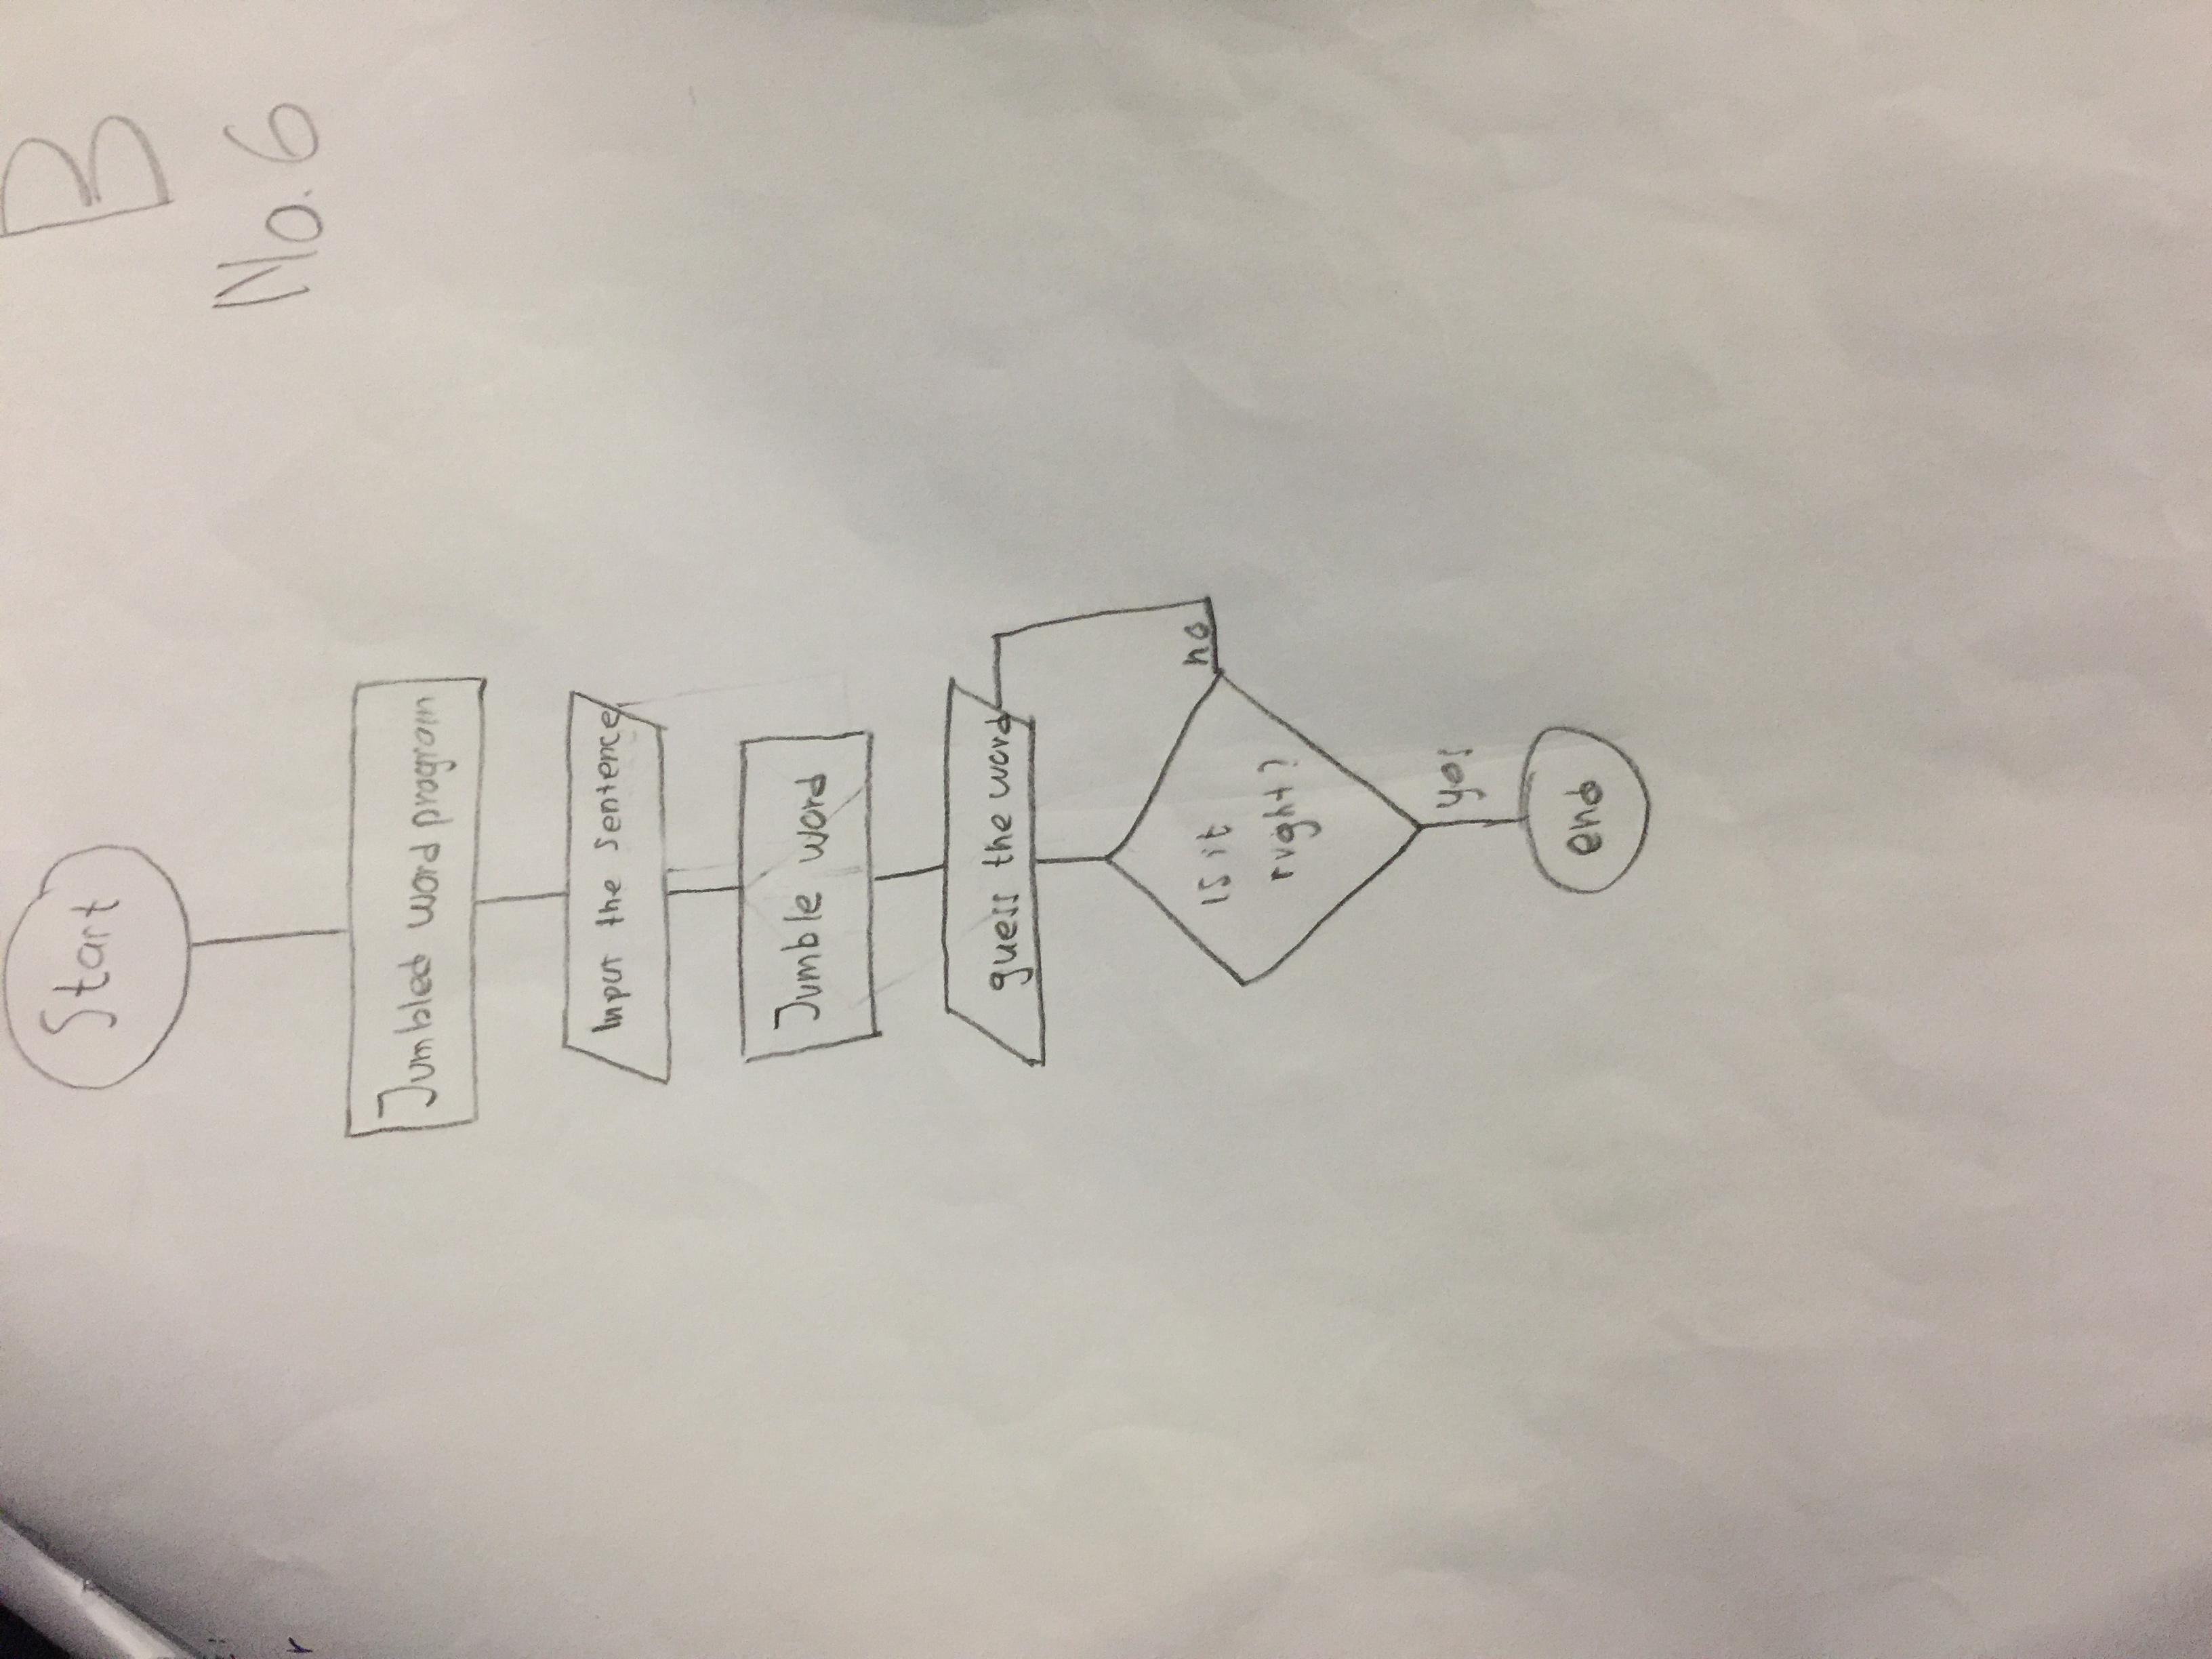 Start
B
No. 6
Jumbled word program
Input the sentence
Jumble word
guess the word
no
Is it
right?
yes
end
r